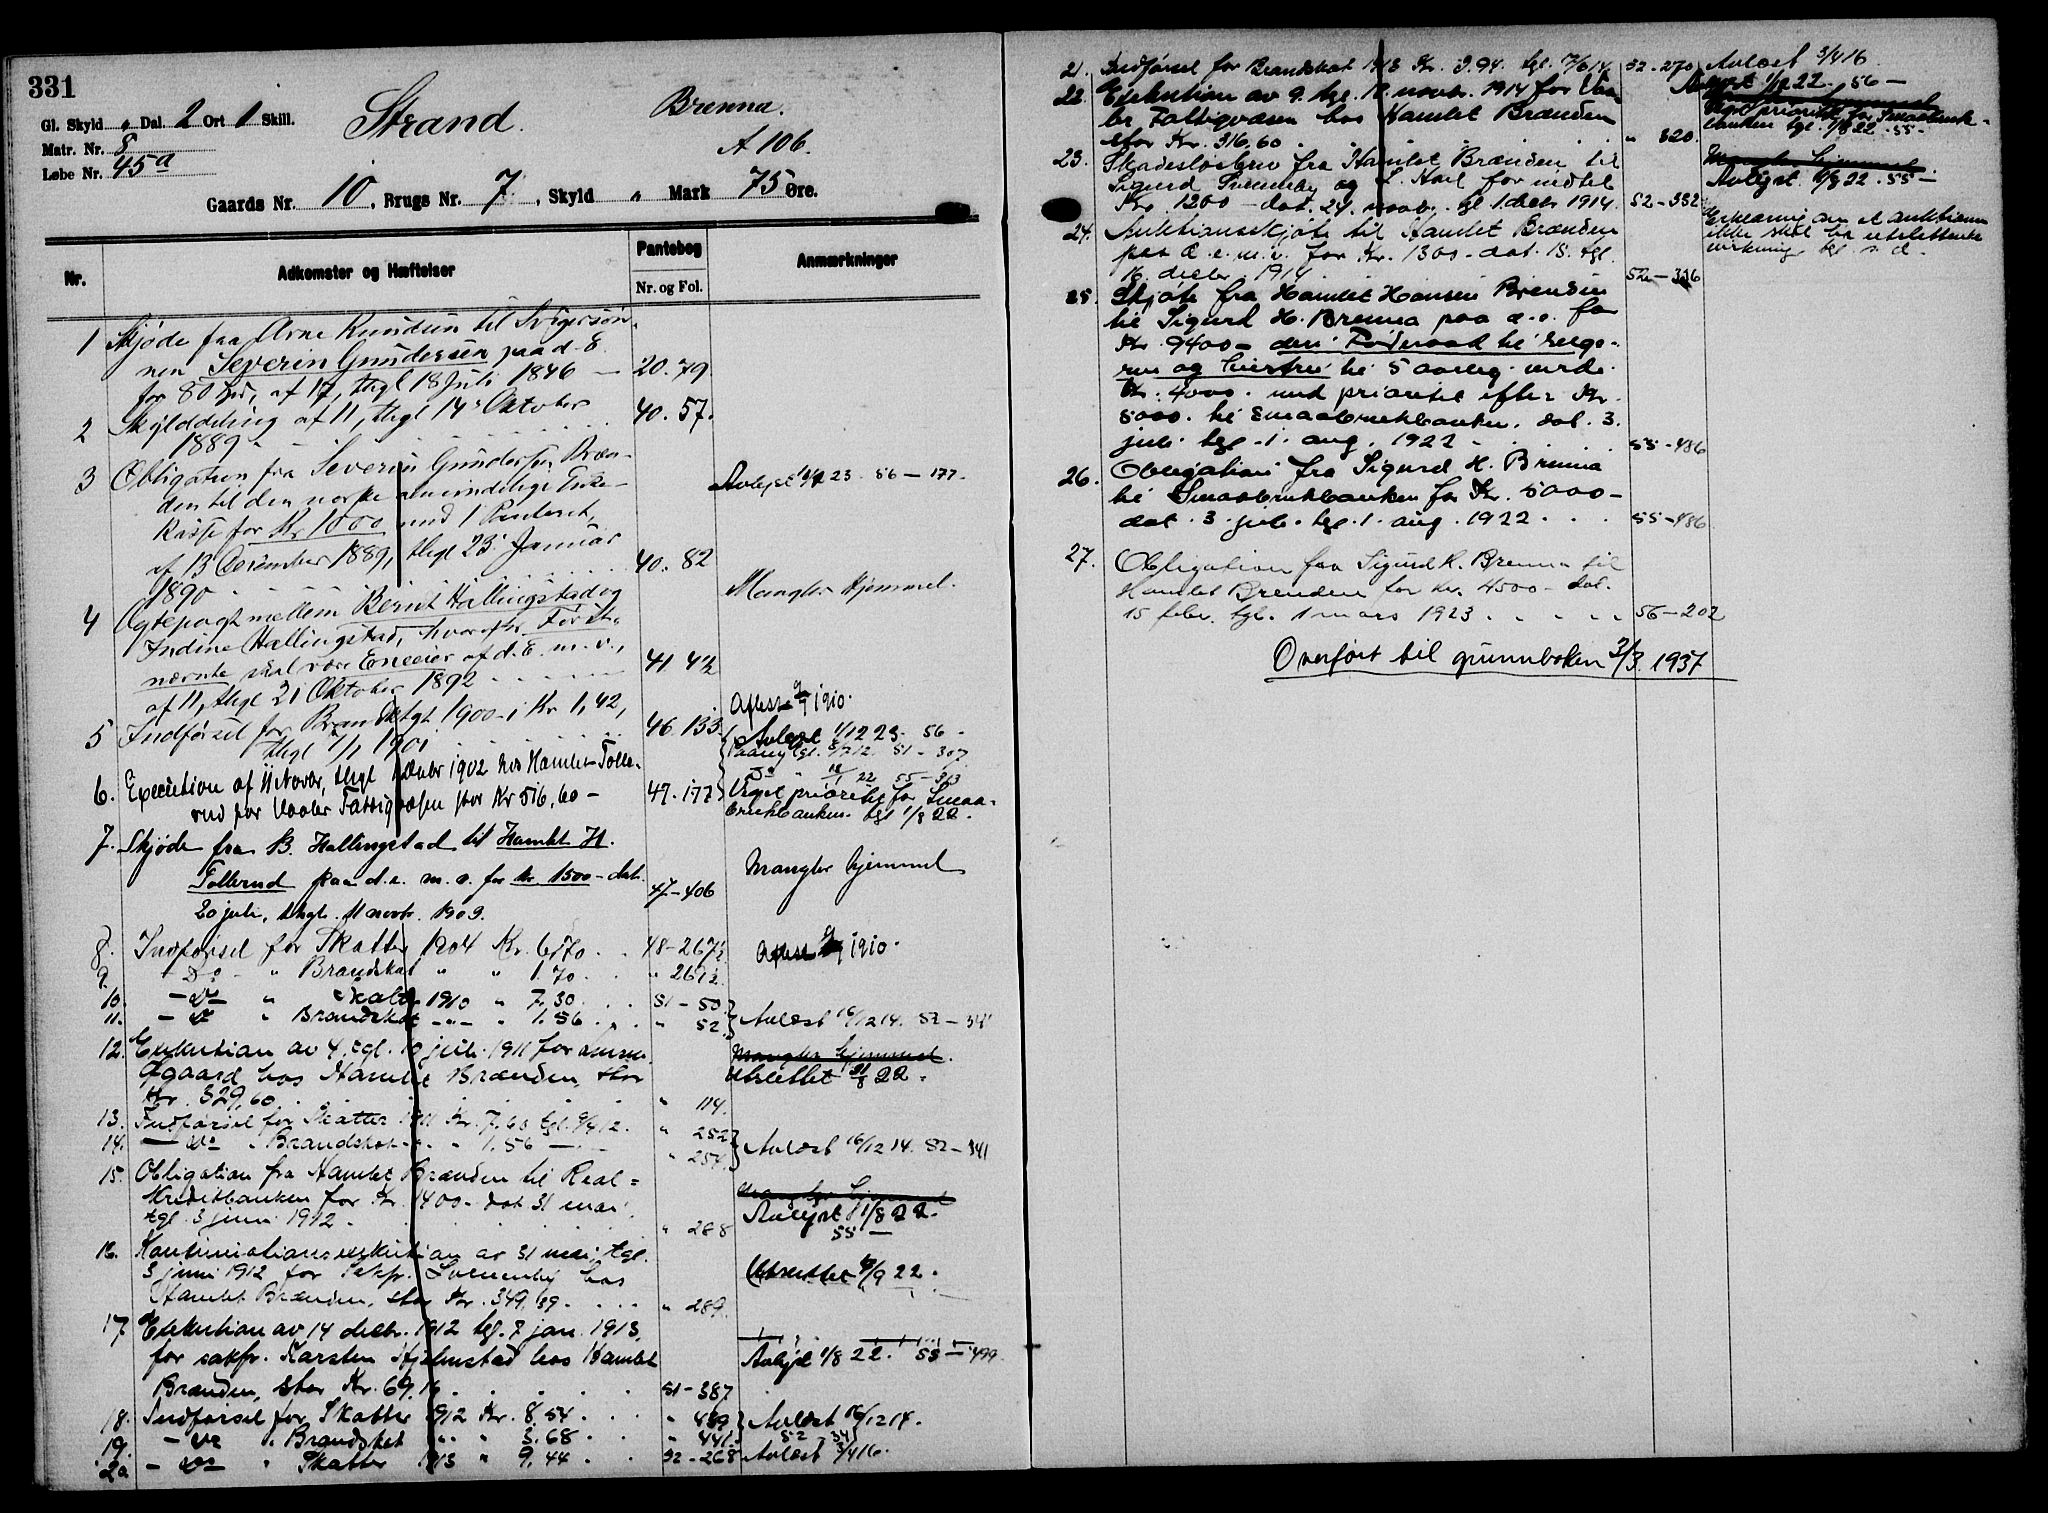 331
Gl. Skyld „ Dal. 2 Ort 1 Skill.
Strand.
Brenna.
Matr. Nr. 8
A 106.
Løbe Nr. 45a
Gaards Nr. 10, Brugs Nr. 7, Skyld „ Mark 75 Øre.
Nr. Adkomster og Hæftelser Pantebog Anmærkninger
Nr. og Fol.
1 Skjøde fra Arne Knudsen til Svigersøn-
nen Severin Gundersen paa d. E.
for 80 Spd, af 17, thgl 18 Juli 1846 — 20. 79
2 Skylddeling af 11, thgl 14 Oktober
1889 . . . 40. 57.
3 Obligation fra Severin Gundersen Bræn-
den til den norske almindelige Enke-
kasse for Kr 1000 med 1 Panteret,
af 13 December 1889, thgl 23 Januar
1890 . . . 40. 82
Avlyst 23. 56 — 177.
4 Ægtepagt mellem Bernt Hallingstad og
Indine Hallingstad, hvorefter Først-
nævnte skal være Eneeier af d. E. m. v.,
af 11, thgl 21 Oktober 1892 . . . 41 42
Mangler Hjemmel.
5 Indførsel for Brandktgt 1900 - i Kr 1,42,
thgl 7/1 1901 . . . 46 133
Aflæst 1910.
6. Execution af 11 Novbr, thgl Decbr 1902 hos Hamlet Tolle-
rud for Vaaler Fattigvæsen stor Kr 516,60 — 47. 177
Avlyst 1/12 23. 56 -
51 - 307
22 55 - 313
Veget prioritet for Smaa-
brukbanken. tgl 1/8 22.
7. Skjøde fra B. Hallingstad til Hamlet H.
Tollerud paa d. e. m. v. for kr. 1500 - dat.
20 juli, thgl. 11 novbr. 1903. 47-406
Mangler hjemmel
8. Indførsel for Skatter 1904 Kr. 6,70 . . 48-267½
9. - Do - „ Brandskat „ „ 1.70 . . „ 267½
Aflæst 1910.
10. - Do - „ Skatter 1910 „ 7,30 . . . 51 - 50
11. - Do „ Brandskat -„- „ 1.56 . . . „ 52.
Avlæst 16/12 14. 52 — 341
12. Exekution av 4, tgl. 10 juli 1911 for
Øgaard hos Hamlet Brænden, stor
Kr. 329,60 . . . „ 114.
Mangler hjemmel.
Utslettet 22.
13. Indførsel for Skatter 1911 Kr. 7.60 tgl. 9/4 12. „ 252
14. — Do „ Brandskat „ „ 1.56 — . . „ 254.
Avlæst 16/12 14. 52 - 341
15. Obligation fra Hamlet Brænden til Real-
kreditbanken for Kr. 1400 - dat 31 mai
tgl. 3 juni 1912 . . . „ 288
Mangler hjemmel
Avlyst 1/8 22.
55 —
16. Kontinuationsexekution av 31 mai, tgl.
3 juni 1912 for Sakfr. Svenneby hos
Hamlet Brænden, stor Kr. 349,39 . . . „ 289.
Utslettet 9/9 22.
17 Exekution av 14 decbr. 1912 tgl. 7 jan. 1913,
for sakfr. Karsten Hjelmstad hos Hamlet
Brænden, stor Kr. 69,16 . . . 51 - 387
Avlyst 1/8 22. 55 — 499.
18. Indførsel for Skatter 1912 Kr. 8,54 . . . „ 439
19. - Do „ Brandskat „ „ 3.68 . . „ 441.
Avlæst 16/12 14.
52 - 341
20 - Do „ Skatter 1913 „ 9,44 . . 52 - 268
Avlæst 3/4 16.
21. Indførsel for Brandskat 1913 Kr. 3.94 tgl. 7/6 14 52 - 270
Avlæst 3/4 16.
22. Exekution av 9. tgl. 12 novbr. 1914 for Vaa-
ler Fattigvæsen hos Hamlet Brænden
stor Kr. 316,60 . . . „ 320.
Avlyst 22. 56 —
Veget prioritet for Smaabruk-
banken tgl. 1/8 22. 55 -
23. Skadesløsbrev fra Hamlet Brænden til
Sigurd Svenneby og for indtil
Kr. 1200 - dat. 24. novbr. tgl 1 decbr 1914. 52 - 332
Mangler hjemmel
Avlyst 1/8 22. 55 -
24. Auktionsskjøte til Hamlet Brænden
paa d. e. m. v. for Kr. 1300 - dat. 15. tgl.
16. decbr. 1914 52 - 336
Erklæring om at auktionen
ikke skal ha utslettende
virkning tgl. s. d.
25. Skjøte fra Hamlet Hansen Brenden
til Sigurd H. Brenna paa d. e. for
Kr. 9400 - den Føderaad til selge-
ren og hustru til 5 aarlig verdi
Kr. 4000. med prioritet efter Kr.
5000. til Smaabrukbanken, dat. 3.
juli tgl. 1. aug. 1922 . . 55 - 486
26. Obligation fra Sigurd H. Brenna
til Smaabrukbanken for Kr. 5000 -
dat. 3. juli tgl. 1. aug. 1922 . . . 55 - 486
27. Obligation fra Sigurd H. Brenna til
Hamlet Brenden for kr. 4500 - dat.
15 febr. tgl. 1 mars 1923 . . . . . 56 - 202
Overført til grunnboken 3/3. 1937